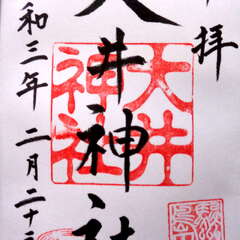 拝
大井神社
和三年 二月二十
大井
神社